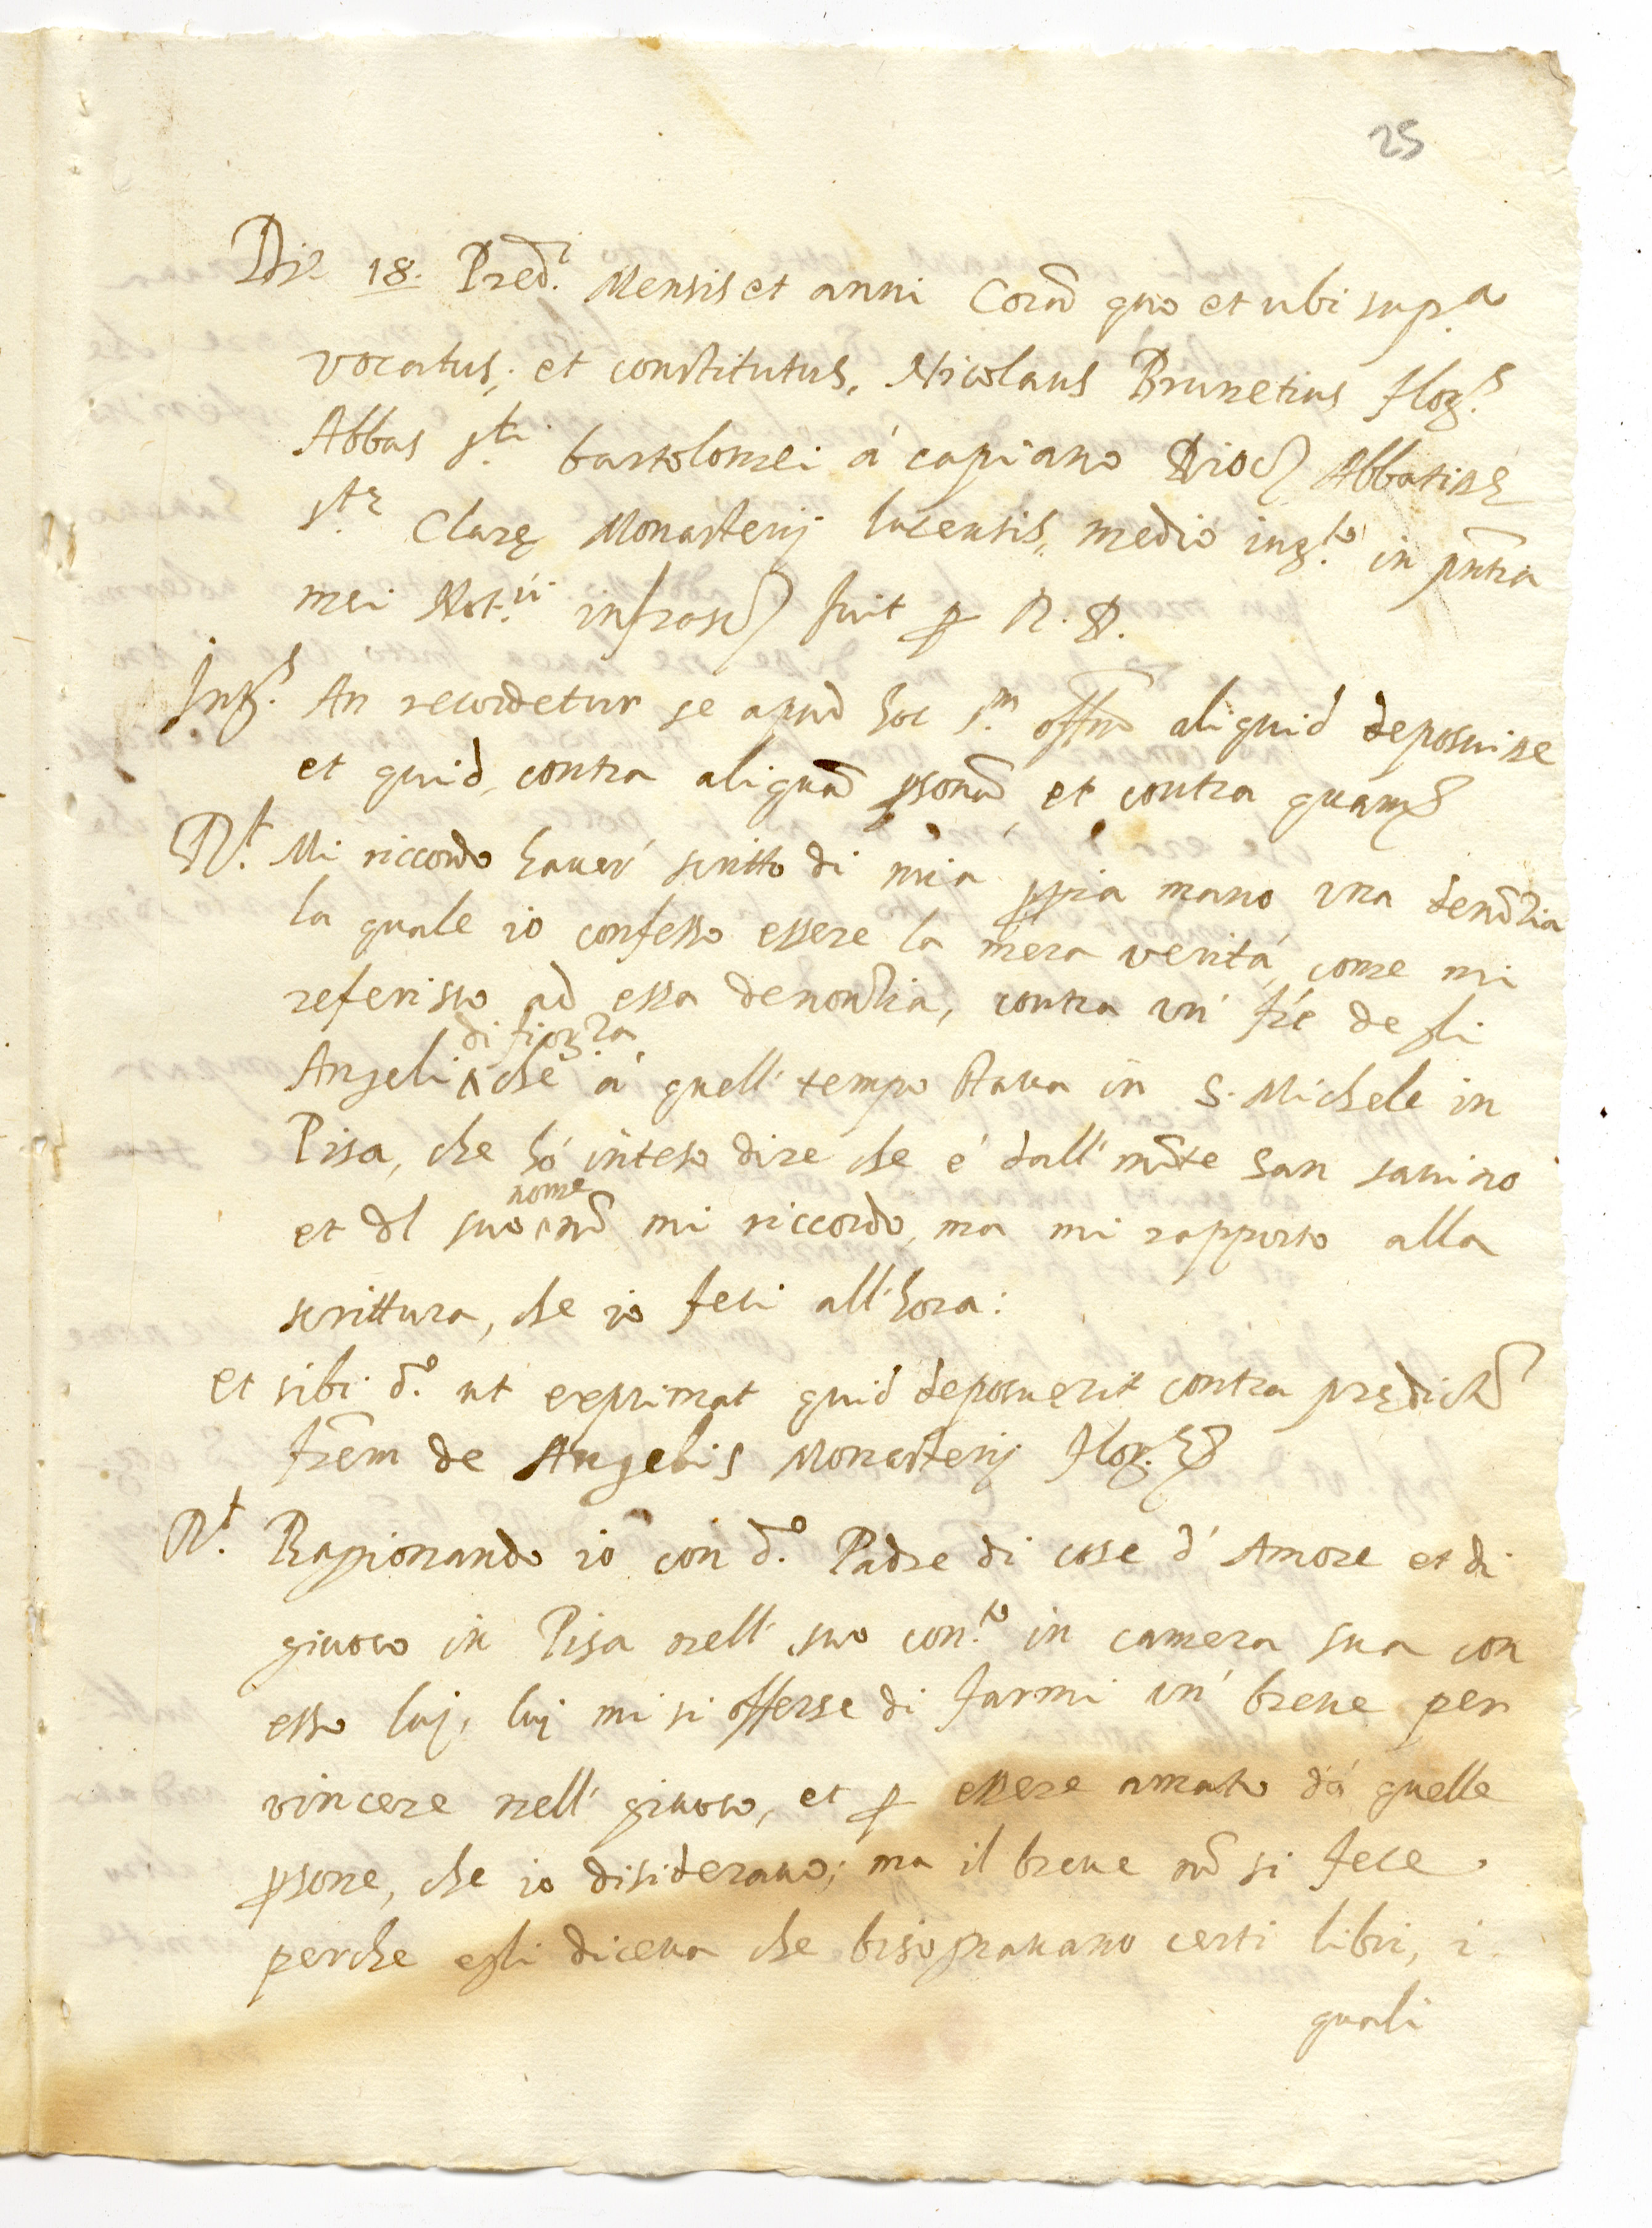 25
Die 18. Pred.i Mensis et anni Corā quo et ubi sup.a
vocatus, et constitutus, Nicolaus Brunetius flor.s
Abbas s.ti bartolomei á capiano Dioc. Abbatiae
s.te Clarę Monasterij lucensis, medio iur.to in pn̄tia
mei Not.ii infrasc. fuit p R. P.
Int.s An recordetur se apud hoc s.m offm̄ aliquid deposuisse
et quid, contra aliquā psonā, et contra quam
R.t Mi riccordo haver' scritto di mia ppia mano una denōtia
la quale io confesso essere la mera veritá, come mi
referisco ad essa denontia, contra un' fr̄e de gli
di fiorza
Angeli ^ che á quell' tempo stava in S. Michele in
Pisa, che hó inteso dire che é dall' mōte san savino
nome
et dl suo ^ nō mi riccordo, ma mi rapporto alla
scrittura, che io feci all'hora:
et sibi d.o ut exprimat quid deposuerit contra prędictū
fr̄em de Angelis Monasterij flor.
R.t Ragionando io con d.o Padre di cose d' Amore et di
giuoco in Pisa nell' suo con.to in camera sua con
esso lui, lui mi si offerse di farmi un' breve per
vincere nell' giuoco, et p essere amato dá quelle
psone, che io disideravo; ma il breve nō si fece
perche egli diceva che bisognavano certi libri, i
quali